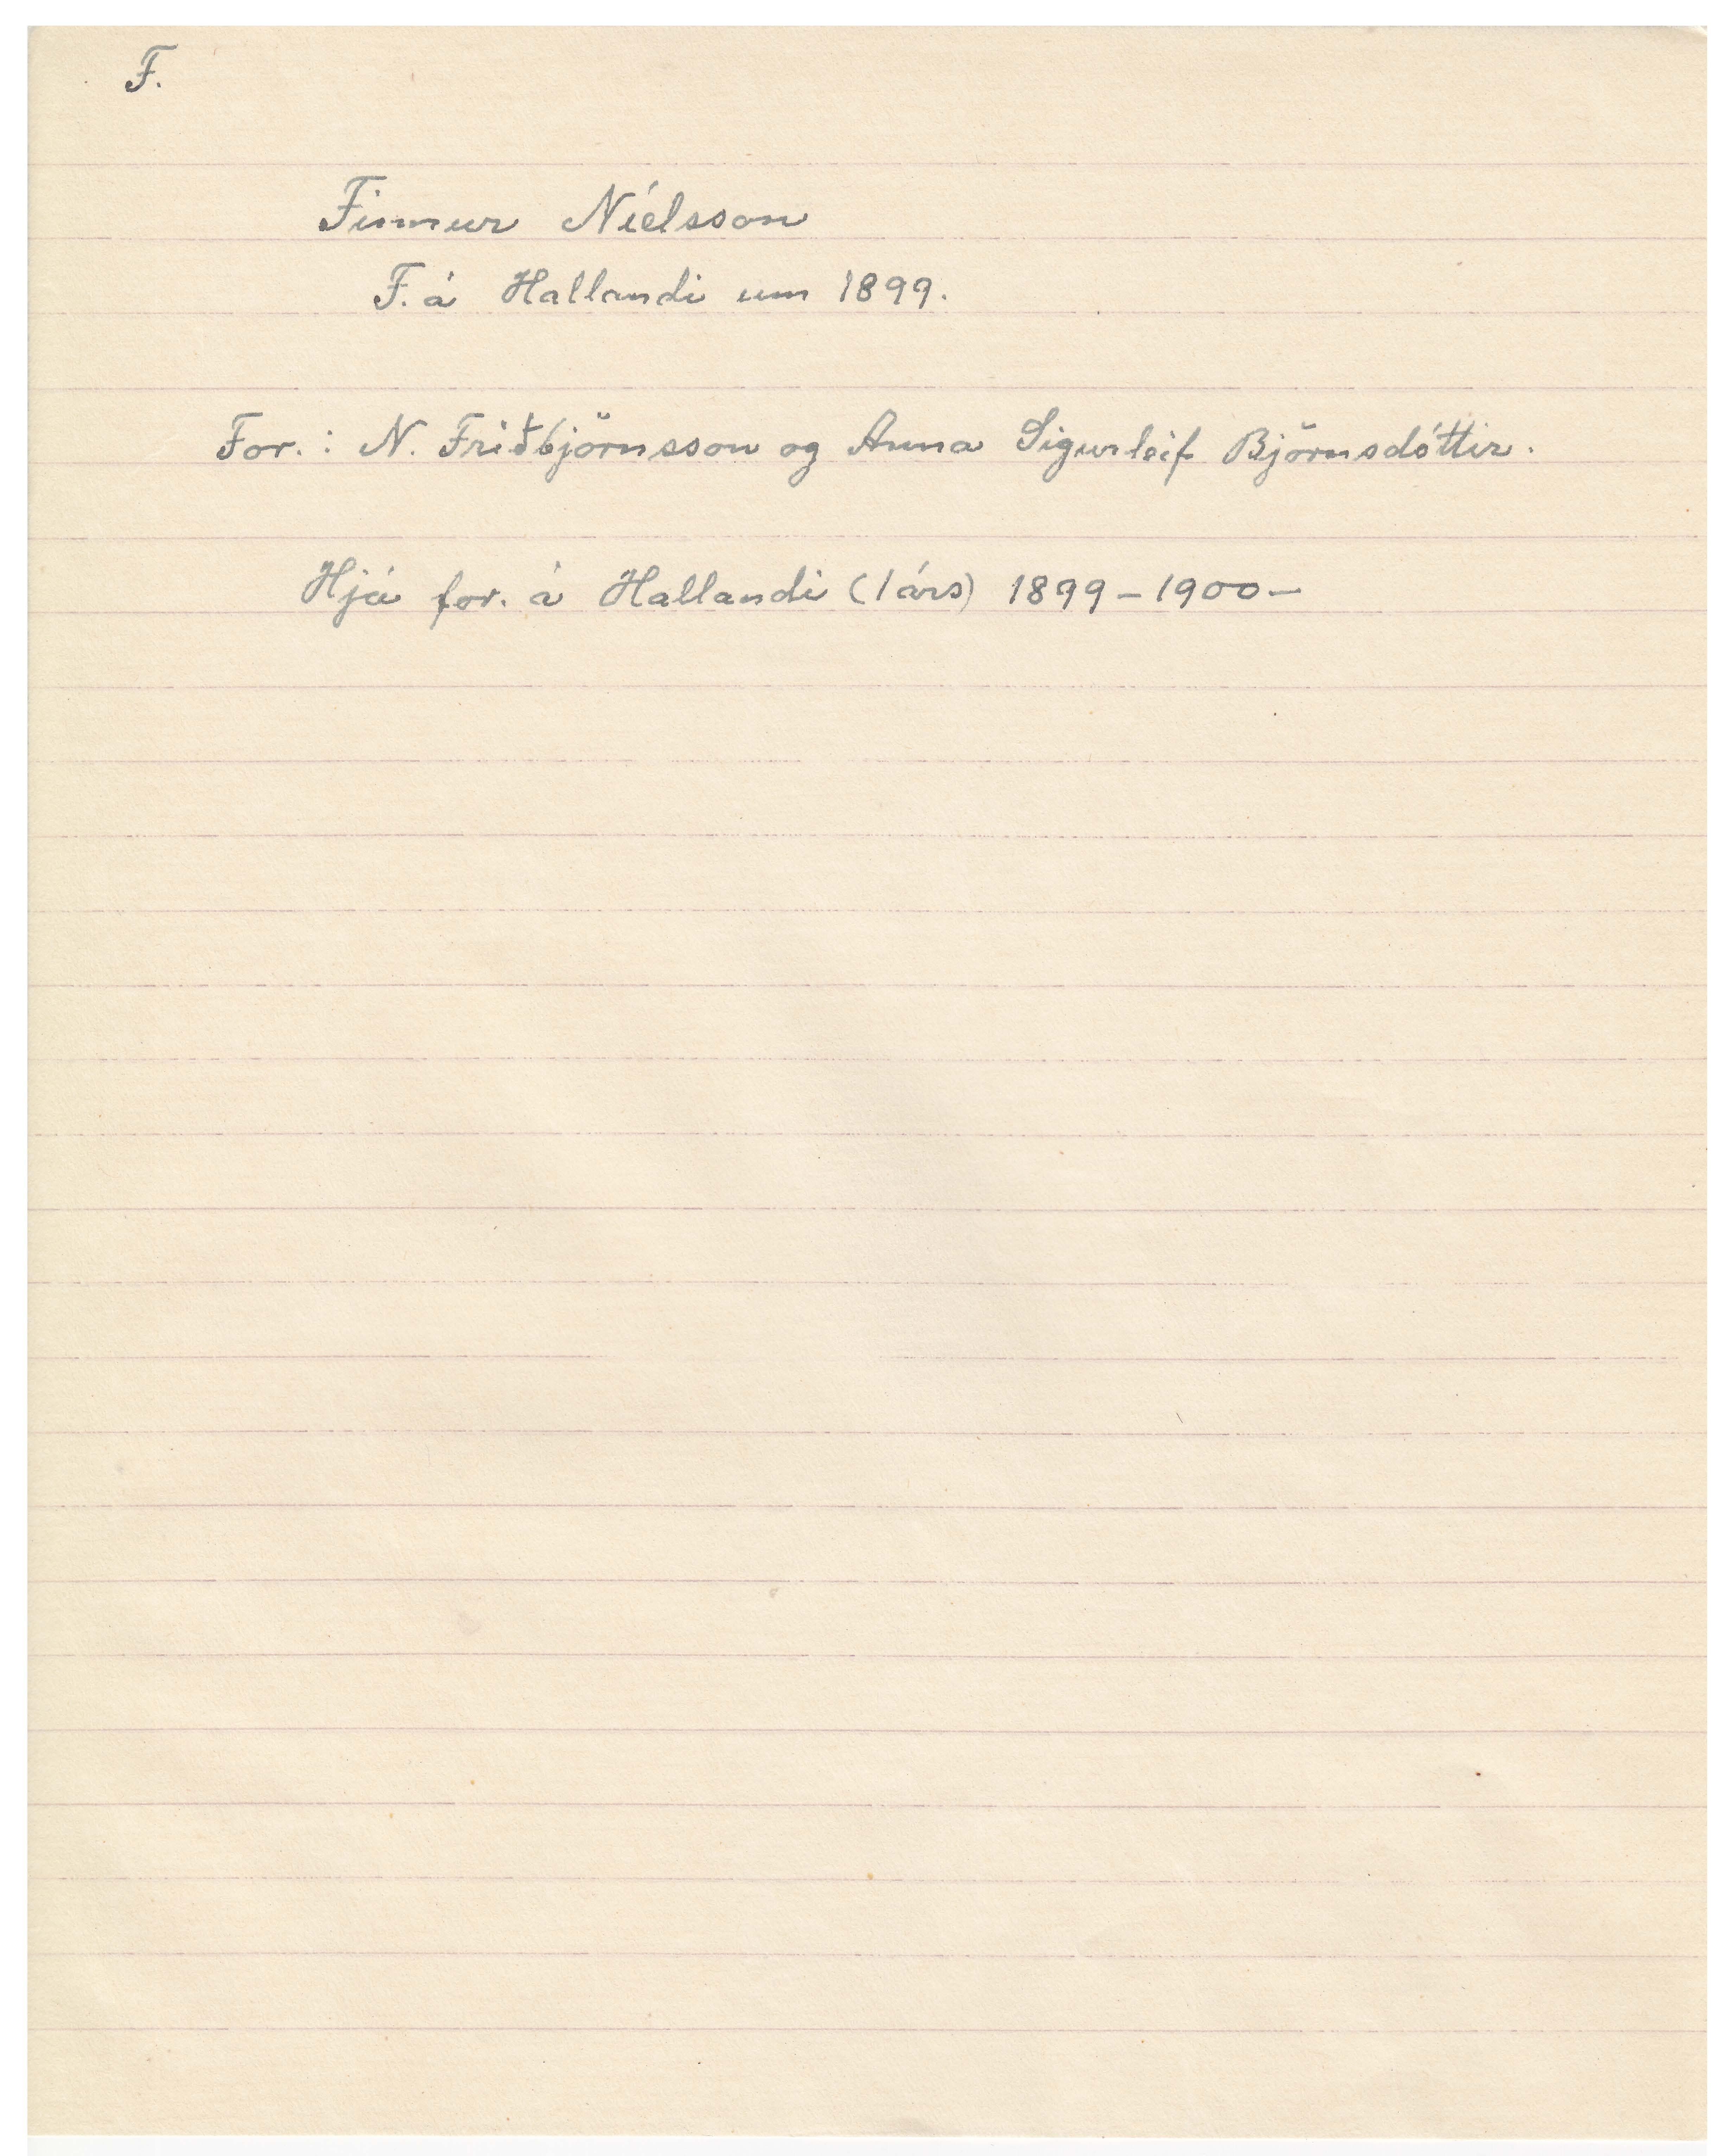 F.
Finnur Níelsson
F. á Hallandi um 1899.
For.: N. Friðbjörnsson og Anna Sigurleif Björnsdóttir.
Hjá for. á Hallandi (1 árs) 1899-1900-